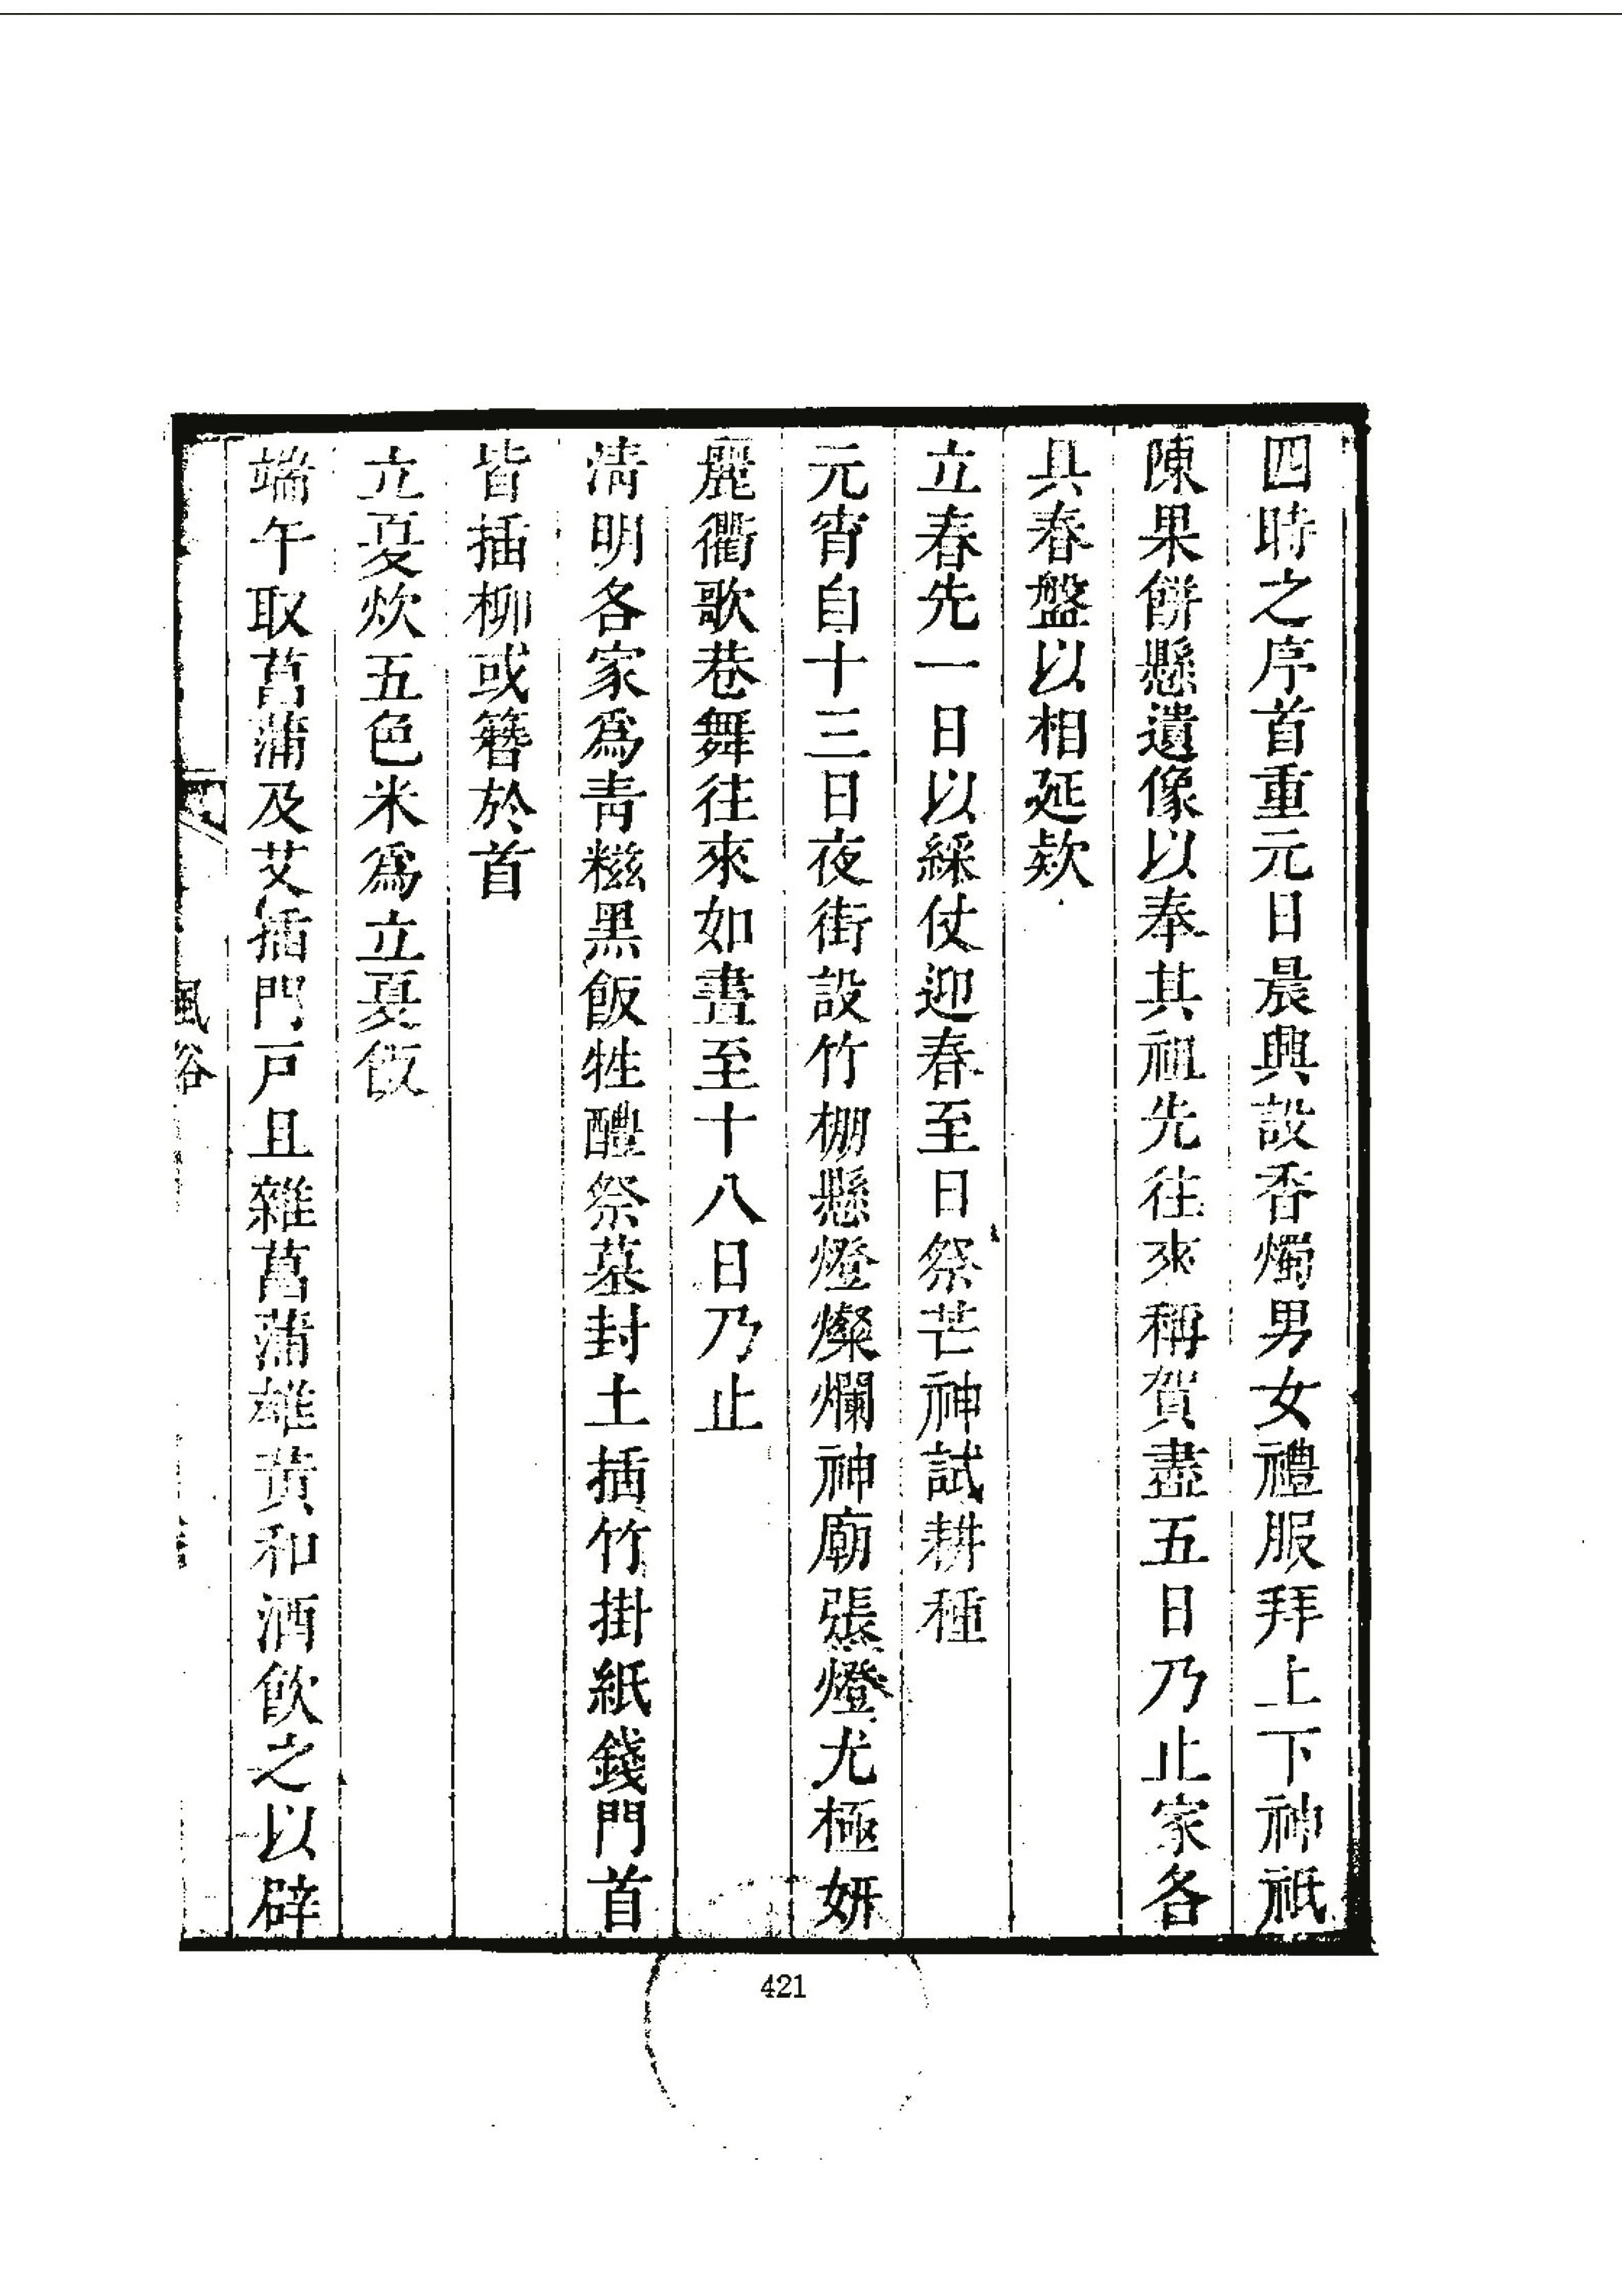 四時之序首重元日晨興設香燭男女禮服拜上下神祇
陳果餅懸遺像以奉其祖先往來稱賀盡五日乃止家各
具春盤以相延欵
立春先一日以綵仗迎春至日祭芒神試耕種
元宵自十三日夜街設竹棚懸燈燦爛神廟張燈尤極妍
麗衢歌巷舞往來如晝至十八日乃止
淸明各家爲靑糍黑飯牲醴祭墓封土插竹掛紙錢門首
皆插柳或簪於首
立夏炊五色米爲立夏飯
端午取菖蒲及艾插門戸且雜菖蒲雄黃和酒飮之以辟
風俗
421